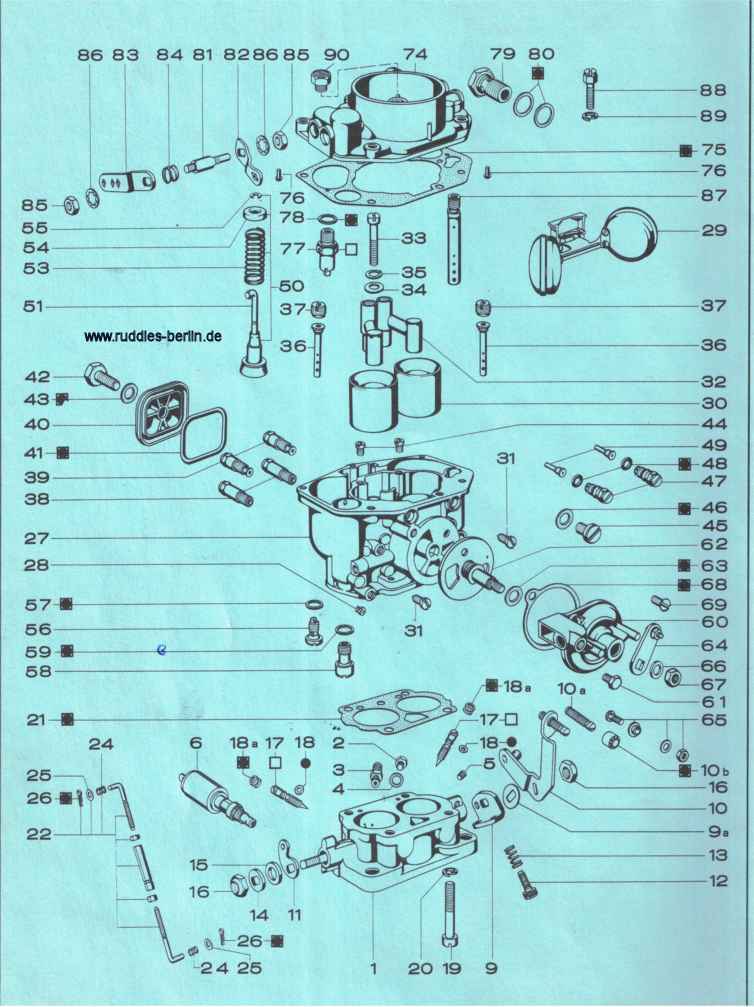 86 83 84 81 82 86 85 90 74 79 80
88
89
75
76
87
85
55
54
53
51
76
78
77
50
33
35
34
29
37
36
37
36
32
30
44
42
43
40
41
39
38
31
49
48
47
46
45
62
63
68
69
60
64
66
67
61
65
27
28
57
56
59
58
31
21
www.ruddies-berlin.de
24
25
26
22
6 18a 17 18
2
3
4
18a
17
18
5
10a
10b
16
10
9a
13
12
15
16
14 11
26
24 25
1 20 19 9